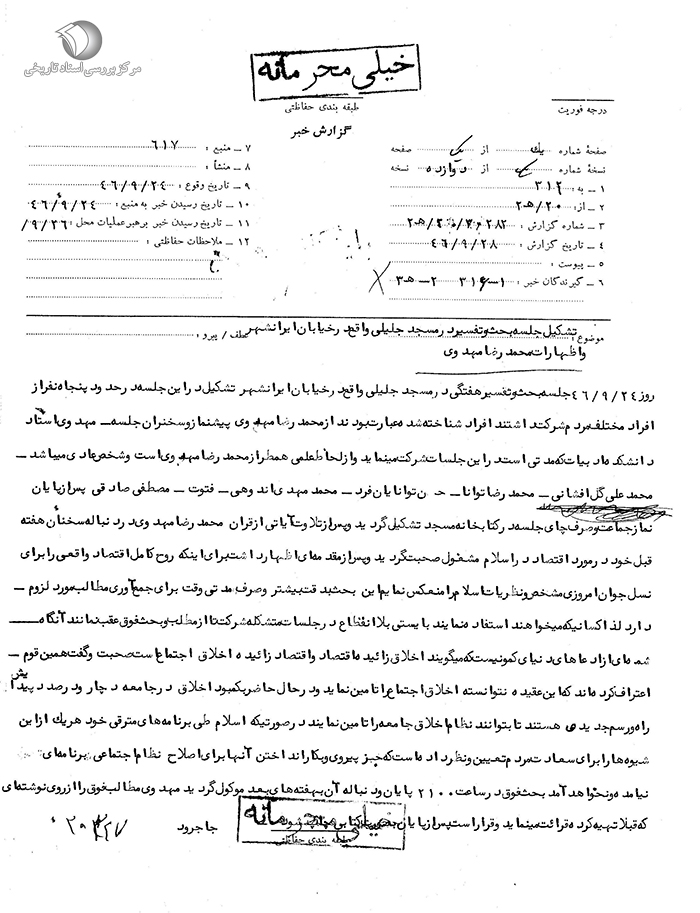 مرکز بررسی اسناد تاریخی
خیلی محرمانه
طبقه بندی حفاظتی
درجه فوریت
گزارش خبر
صفحهٔ شماره یك از یك صفحه
نسخهٔ شماره یك از دوازده نسخه
۱ ـ به : ۳۱۲
۲ ـ از : ۲۰/هـ۲
۳ ـ شماره گزارش :
۴ ـ تاریخ گزارش : ۴۶/۹/۲۸
۵ ـ پیوست :
۶ ـ گیرندگان خبر : ۱ـ ۳۱۶ ۲ـ هـ۳
۷ ـ منبع : ۶۱۷
۸ ـ منشأ :
۹ ـ تاریخ وقوع : ۴۶/۹/۲۴
۱۰ ـ تاریخ رسیدن خبر به منبع : ۴۶/۹/۲۴
۱۱ ـ تاریخ رسیدن خبر برهبر عملیات محل : ۹/۲۶/
۱۲ ـ ملاحظات حفاظتی :
موضوع : تشکیل جلسه بحث و تفسیر در مسجد جلیلی واقع در خیابان ایرانشهر عطف / پیرو :
و اظهارات محمد رضا مهدوی
روز ۴۶/۹/۲۴ جلسه بحث و تفسیر هفتگی در مسجد جلیلی واقع در خیابان ایرانشهر تشکیل در این جلسه در حدود پنجاه نفر از
افراد مختلف مردم شرکت داشتند افراد شناخته شده عبارت بودند از محمد رضا مهدوی پیشنماز و سخنران جلسه ـ مهدوی استاد
دانشکده ادبیات که مدتی است در این جلسات شرکت مینماید و از لحاظ علمی همطراز محمد رضا مهدوی است و شخص عادی میباشد ـ
محمد علی گل افشانی ـ محمد رضا توانا ـ حسن توانایان فرد ـ محمد مهدی اندوهی ـ فتوت ـ مصطفی صادقی پس از پایان
نماز جماعت و صرف چای جلسه در کتابخانه مسجد تشکیل گردید و پس از تلاوت آیاتی از قران محمد رضا مهدوی در دنباله سخنان هفته
قبل خود در مورد اقتصاد در اسلام مشغول صحبت گردید و پس از مقدمه ای اظهار داشت برای اینکه روح کامل اقتصاد واقعی را برای
نسل جوان امروزی مشخص و نظریات اسلام را منعکس نمایم این بحث بدقت بیشتر و صرف مدتی وقت برای جمع آوری مطالب مورد لزوم ـ
دارد لذا کسانیکه میخواهند استفاده نمایند بایستی بلا انقطاع در جلسات متشکله شرکت تا از مطلب و بحث فوق عقب نمانند آنگاه
شمه ای از ادعا های دنیای کمونیست که میگویند اخلاق زائیده اقتصاد و اقتصاد زائیده اخلاق اجتماع است صحبت و گفت همین قوم ـ
اعتراف کرده اند که این عقیده نتوانسته اخلاق اجتماع را تامین نماید و در حال حاضر بکمبود اخلاق در جامعه دچار و درصدد پیدایش
راه و رسم جدیدی هستند تا بتوانند نظام اخلاق جامعه را تامین نمایند در صورتیکه اسلام طی برنامه های مترقی خود هریک از این
شیوه ها را برای سعادت مردم تعیین و نظر داده است که جز پیروی و بکار انداختن آنها برای اصلاح نظام اجتماعی برنامه ای ـ
نیامده و نخواهد آمد بحث فوق در ساعت ۲۱۰۰ پایان و دنباله آن بهفته های بعد موکول گردید مهدوی مطالب فوق را از روی نوشته ای
که قبلا تهیه کرده قرائت مینماید و قرار است پس از پایان بحث
جاجرود
خیلی محرمانه
طبقه بندی حفاظتی